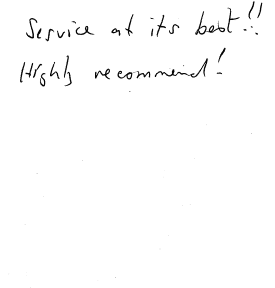 Service at its best!!!
Highly recommend!